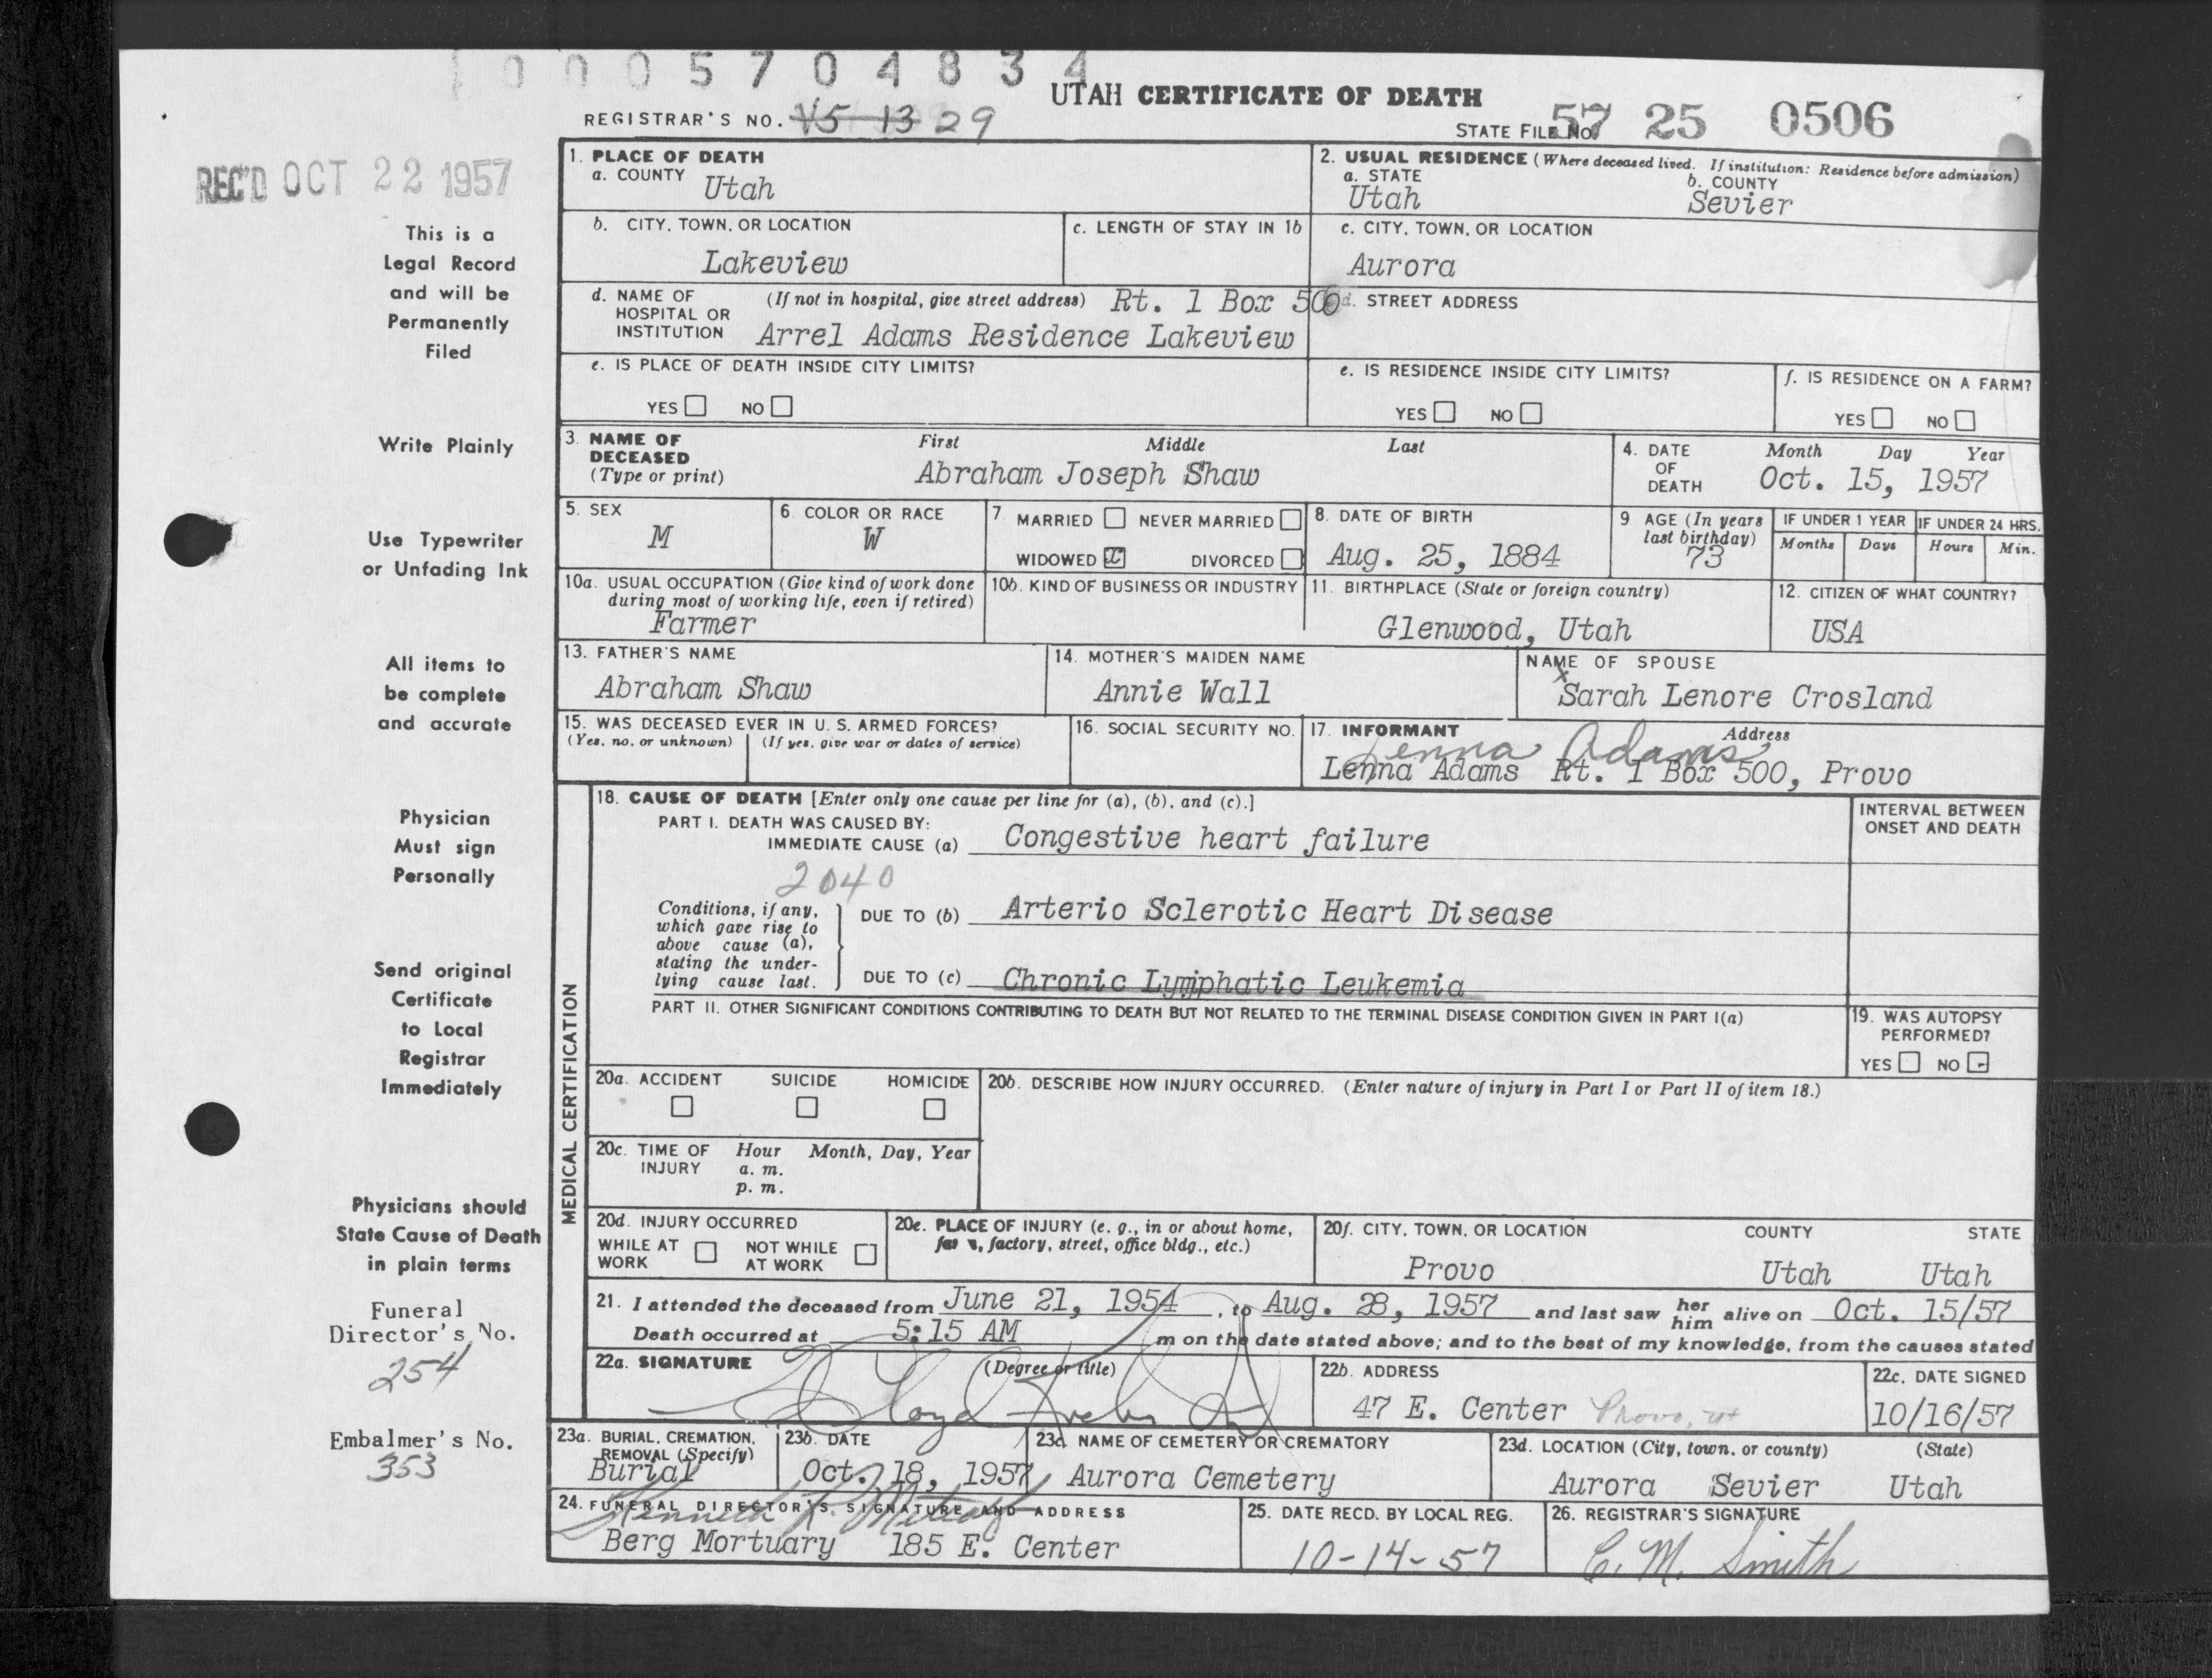 1 0 0 0 5 7 0 4 8 3 4
UTAH CERTIFICATE OF DEATH
REGISTRAR'S NO. V5 13 29
STATE FILE NO. 57 25 0506
REC'D OCT 22 1957
This is a
Legal Record
and will be
Permanently
Filed
Write Plainly
Use Typewriter
or Unfading Ink
All items to
be complete
and accurate
Physician
Must sign
Personally
Send original
Certificate
to Local
Registrar
Immediately
Physicians should
State Cause of Death
in plain terms
Funeral
Director's No.
254
Embalmer's No.
353
1. PLACE OF DEATH
a. COUNTY Utah
2. USUAL RESIDENCE (Where deceased lived. If institution: Residence before admission)
a. STATE Utah
b. COUNTY Sevier
b. CITY, TOWN, OR LOCATION
Lakeview
c. LENGTH OF STAY IN 1b
c. CITY, TOWN, OR LOCATION
Aurora
d. NAME OF HOSPITAL OR INSTITUTION (If not in hospital, give street address) Rt. 1 Box 500
Arrel Adams Residence Lakeview
d. STREET ADDRESS
e. IS PLACE OF DEATH INSIDE CITY LIMITS?
YES NO
e. IS RESIDENCE INSIDE CITY LIMITS?
YES NO
f. IS RESIDENCE ON A FARM?
YES NO
3. NAME OF DECEASED (Type or print)
First Middle Last
Abraham Joseph Shaw
4. DATE OF DEATH
Month Day Year
Oct. 15, 1957
5. SEX
M
6. COLOR OR RACE
W
7. MARRIED NEVER MARRIED
WIDOWED x DIVORCED
8. DATE OF BIRTH
Aug. 25, 1884
9 AGE (In years last birthday)
73
IF UNDER 1 YEAR
Months Days
IF UNDER 24 HRS.
Hours Min.
10a. USUAL OCCUPATION (Give kind of work done during most of working life, even if retired)
Farmer
10b. KIND OF BUSINESS OR INDUSTRY
11. BIRTHPLACE (State or foreign country)
Glenwood, Utah
12. CITIZEN OF WHAT COUNTRY?
USA
13. FATHER'S NAME
Abraham Shaw
14. MOTHER'S MAIDEN NAME
Annie Wall
NAME OF SPOUSE
x
Sarah Lenore Crosland
15. WAS DECEASED EVER IN U. S. ARMED FORCES?
(Yes, no, or unknown) (If yes, give war or dates of service)
16. SOCIAL SECURITY NO.
17. INFORMANT Address
Lenna Adams
Lenna Adams Rt. 1 Box 500, Provo
MEDICAL CERTIFICATION
18. CAUSE OF DEATH [Enter only one cause per line for (a), (b), and (c).]
INTERVAL BETWEEN ONSET AND DEATH
PART I. DEATH WAS CAUSED BY:
IMMEDIATE CAUSE (a) Congestive heart failure
2040
Conditions, if any, which gave rise to above cause (a), stating the underlying cause last.
DUE TO (b) Arterio Sclerotic Heart Disease
DUE TO (c) Chronic Lymphatic Leukemia
PART II. OTHER SIGNIFICANT CONDITIONS CONTRIBUTING TO DEATH BUT NOT RELATED TO THE TERMINAL DISEASE CONDITION GIVEN IN PART I(a)
19. WAS AUTOPSY PERFORMED?
YES NO -
20a. ACCIDENT SUICIDE HOMICIDE
20b. DESCRIBE HOW INJURY OCCURRED. (Enter nature of injury in Part I or Part II of item 18.)
20c. TIME OF INJURY
Hour Month, Day, Year
a. m.
p. m.
20d. INJURY OCCURRED
WHILE AT WORK NOT WHILE AT WORK
20e. PLACE OF INJURY (e. g., in or about home, factory, street, office bldg., etc.)
20f. CITY, TOWN, OR LOCATION COUNTY STATE
Provo Utah Utah
21. I attended the deceased from June 21, 1954, to Aug. 28, 1957 and last saw her him alive on Oct. 15/57
Death occurred at 5:15 AM m on the date stated above; and to the best of my knowledge, from the causes stated
22a. SIGNATURE (Degree or title)
22b. ADDRESS
47 E. Center Provo, Ut
22c. DATE SIGNED
10/16/57
23a. BURIAL, CREMATION, REMOVAL (Specify)
Burial
23b. DATE
Oct. 18, 1957
23c. NAME OF CEMETERY OR CREMATORY
Aurora Cemetery
23d. LOCATION (City, town, or county) (State)
Aurora Sevier Utah
24. FUNERAL DIRECTOR'S SIGNATURE AND ADDRESS
Berg Mortuary 185 E. Center
25. DATE RECD. BY LOCAL REG.
10-14-57
26. REGISTRAR'S SIGNATURE
C. M. Smith